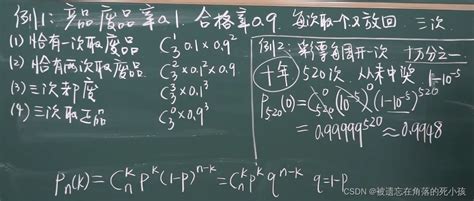 例1：产品废品率0.1 合格率0.9 每次取个又放回 三次
(1) 恰有一次取废品 C₃¹ 0.1×0.9²
(2) 恰有两次取废品 C₃² 0.1²×0.9
(3) 三次都废 C₃³ 0.1³
(4) 三次取正品 C₃⁰ 0.9³
例2：彩票每周开一次 十万分之一
十年 520次 从未中奖 1-10⁻⁵
P₅₂₀(0) = C₅₂₀⁰ (10⁻⁵)⁰ (1-10⁻⁵)⁵²⁰
= 0.99999⁵²⁰ ≈ 0.9948
Pₙ(k) = Cₙᵏ pᵏ (1-p)ⁿ⁻ᵏ = Cₙᵏ pᵏ qⁿ⁻ᵏ q=1-p
CSDN @被遗忘在角落的死小孩